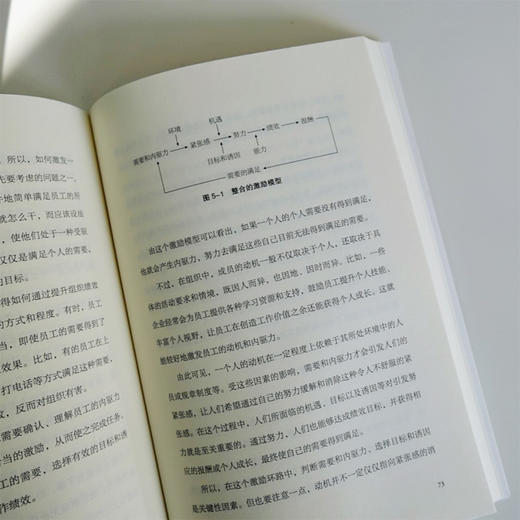 所以，如何激发一
先要考虑的问题之一，
地简单满足员工的所
就怎么干，而应该设
使他们处于一种受驱
仅仅是满足个人的需要，
的目标。
得如何通过提升组织绩效
的方式和程度。有时，员工
当，即使员工的需要得到了
应效果。比如，有的员工在上
打电话等方式满足这种需要，
效，反而对组织有害。
需要确认、理解员工的内驱力
当的激励，从而使之完成任务。
工的需要，选择有效的目标和诱
作绩效。
环境 机遇
需要和内驱力 紧张感 努力 绩效 报酬
目标和诱因 能力
需要的满足
图 5-1 整合的激励模型
由这个激励模型可以看出，如果一个人的个人需要没有得到满足，
他就会产生内驱力，努力去满足这些自己目前无法得到满足的需要。
不过，在组织中，成员的动机一般不仅取决于个人，还取决于具
体的活动要求和情境，既因人而异，也因地、因时而异。比如，一些
企业经常会为员工提供各种学习资源和支持，鼓励员工提升个人技能、
丰富个人视野，让员工在创造工作价值之余还能获得个人成长。这就
能较好地激发员工的动机和内驱力。
由此可见，一个人的动机在一定程度上依赖于其所处环境中的人
员或规章制度等。受这些因素的影响，需要和内驱力才会引发人们的
紧张感，让人们希望通过自己的努力缓解和消除这种令人不舒服的紧
张感。在这个过程中，人们所面临的机遇、目标以及诱因等对引发努
力就是至关重要的。通过努力，人们也能够达成绩效目标，并获得相
应的报酬或个人成长，最终使自己的需要得到满足。
所以，在这个激励环路中，判断需要和内驱力、选择目标和诱因
是关键性因素。但也要注意一点，动机并不一定仅仅指向紧张感的消
73